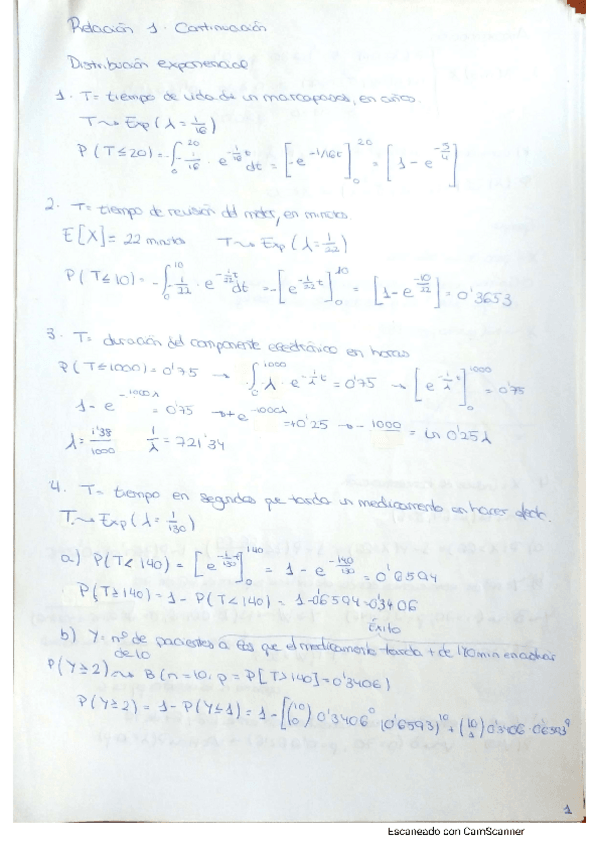 Relación 1. Continuación
Distribución exponencial
1. T = tiempo de vida de un marcapasos, en años.
T ⇝ Exp (λ = 1/16)
P(T ≤ 20) = ∫₀²⁰ 1/16 · e^(-1/16 t) dt = [-e^(-1/16 t)]₀²⁰ = [1 - e^(-5/4)]
2. T = tiempo de revisión del motor, en minutos.
E[X] = 22 minutos T ⇝ Exp (λ = 1/22)
P(T ≤ 10) = -∫₀¹⁰ -1/22 · e^(-1/22 t) dt = -[e^(-1/22 t)]₀¹⁰ = [1 - e^(-10/22)] = 0'3653
3. T = duración del componente electrónico en horas
P(T ≤ 1000) = 0'75 → ∫₀¹⁰⁰⁰ λ · e^(-1/λ t) = 0'75 → [e^(-1/λ t)]₀¹⁰⁰⁰ = 0'75
1 - e^(-1000λ) = 0'75 → +e^(-1000λ) = +0'25 → - 1000 = ln 0'25 λ
λ = 1'38/1000 1/λ = 721'34
4. T = tiempo en segundos que tarda un medicamento en hacer efecto.
T ⇝ Exp (λ = 1/130)
a) P(T < 140) = [e^(-1/130 t)]₀¹⁴⁰ = 1 - e^(-140/130) = 0'6594
P(T ≥ 140) = 1 - P(T < 140) = 1 - 0'6594 = 0'3406
Éxito
b) Y = nº de pacientes a los que el medicamento tarda + de 140 min en
de 10
P(Y ≥ 2) ⇝ B(n = 10, p = P[T > 140] = 0'3406)
P(Y ≥ 2) = 1 - P(Y ≤ 1) = 1 - [(10 0) 0'3406⁰ (0'6593)¹⁰ + (10 1) 0'3406 · 0'6593⁹
1
Escaneado con CamScanner